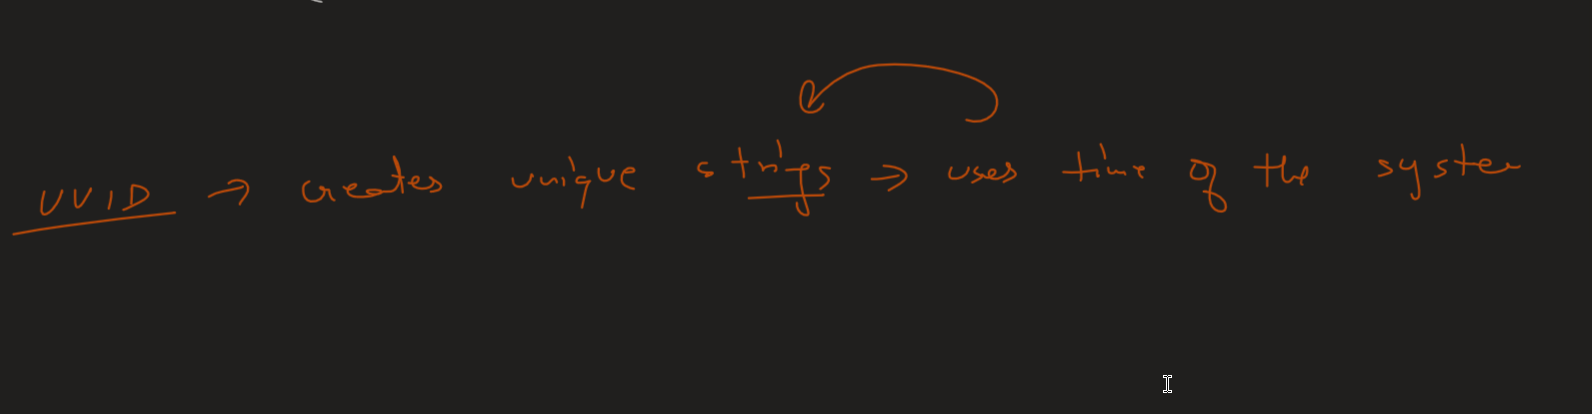 UUID → creates unique strings → uses time of the system